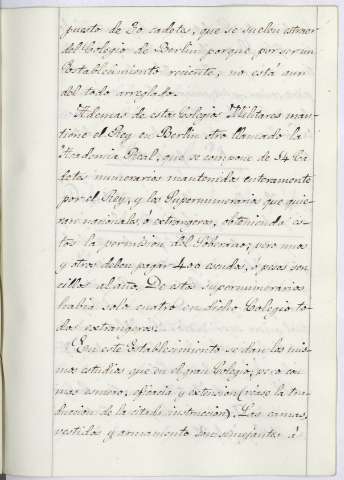 puesto de 30 cadetes, que se suelen extraer
del Colegio de Berlin porque por ser un
Establecimiento reciente, no está aun
del todo arreglado.
Ademas de estos Colegios Militares man-
tiene el Rey en Berlin otro llamado la
Academia Real, que se compone de 14 Ca-
detes numerarios mantenidos enteramente
por el Rey; y los Supernumerarios que quie-
ran nacionales, ó extrangeros, obteniendo es-
tos la permision del Soberano; pero unos
y otros deben pagar 400 escudos, ó pesos sen-
cillos al año. De estos supernumerarios
habia solo cuatro en dicho Colegio to-
dos extrangeros.
En este Establecimiento se dan los mis-
mos estudios que en el gran Colegio; pero con
mas esmero, eficacia y extension (véase la tra-
duccion de la citada instruccion). Las camas,
vestidos y armamento son semejantes á